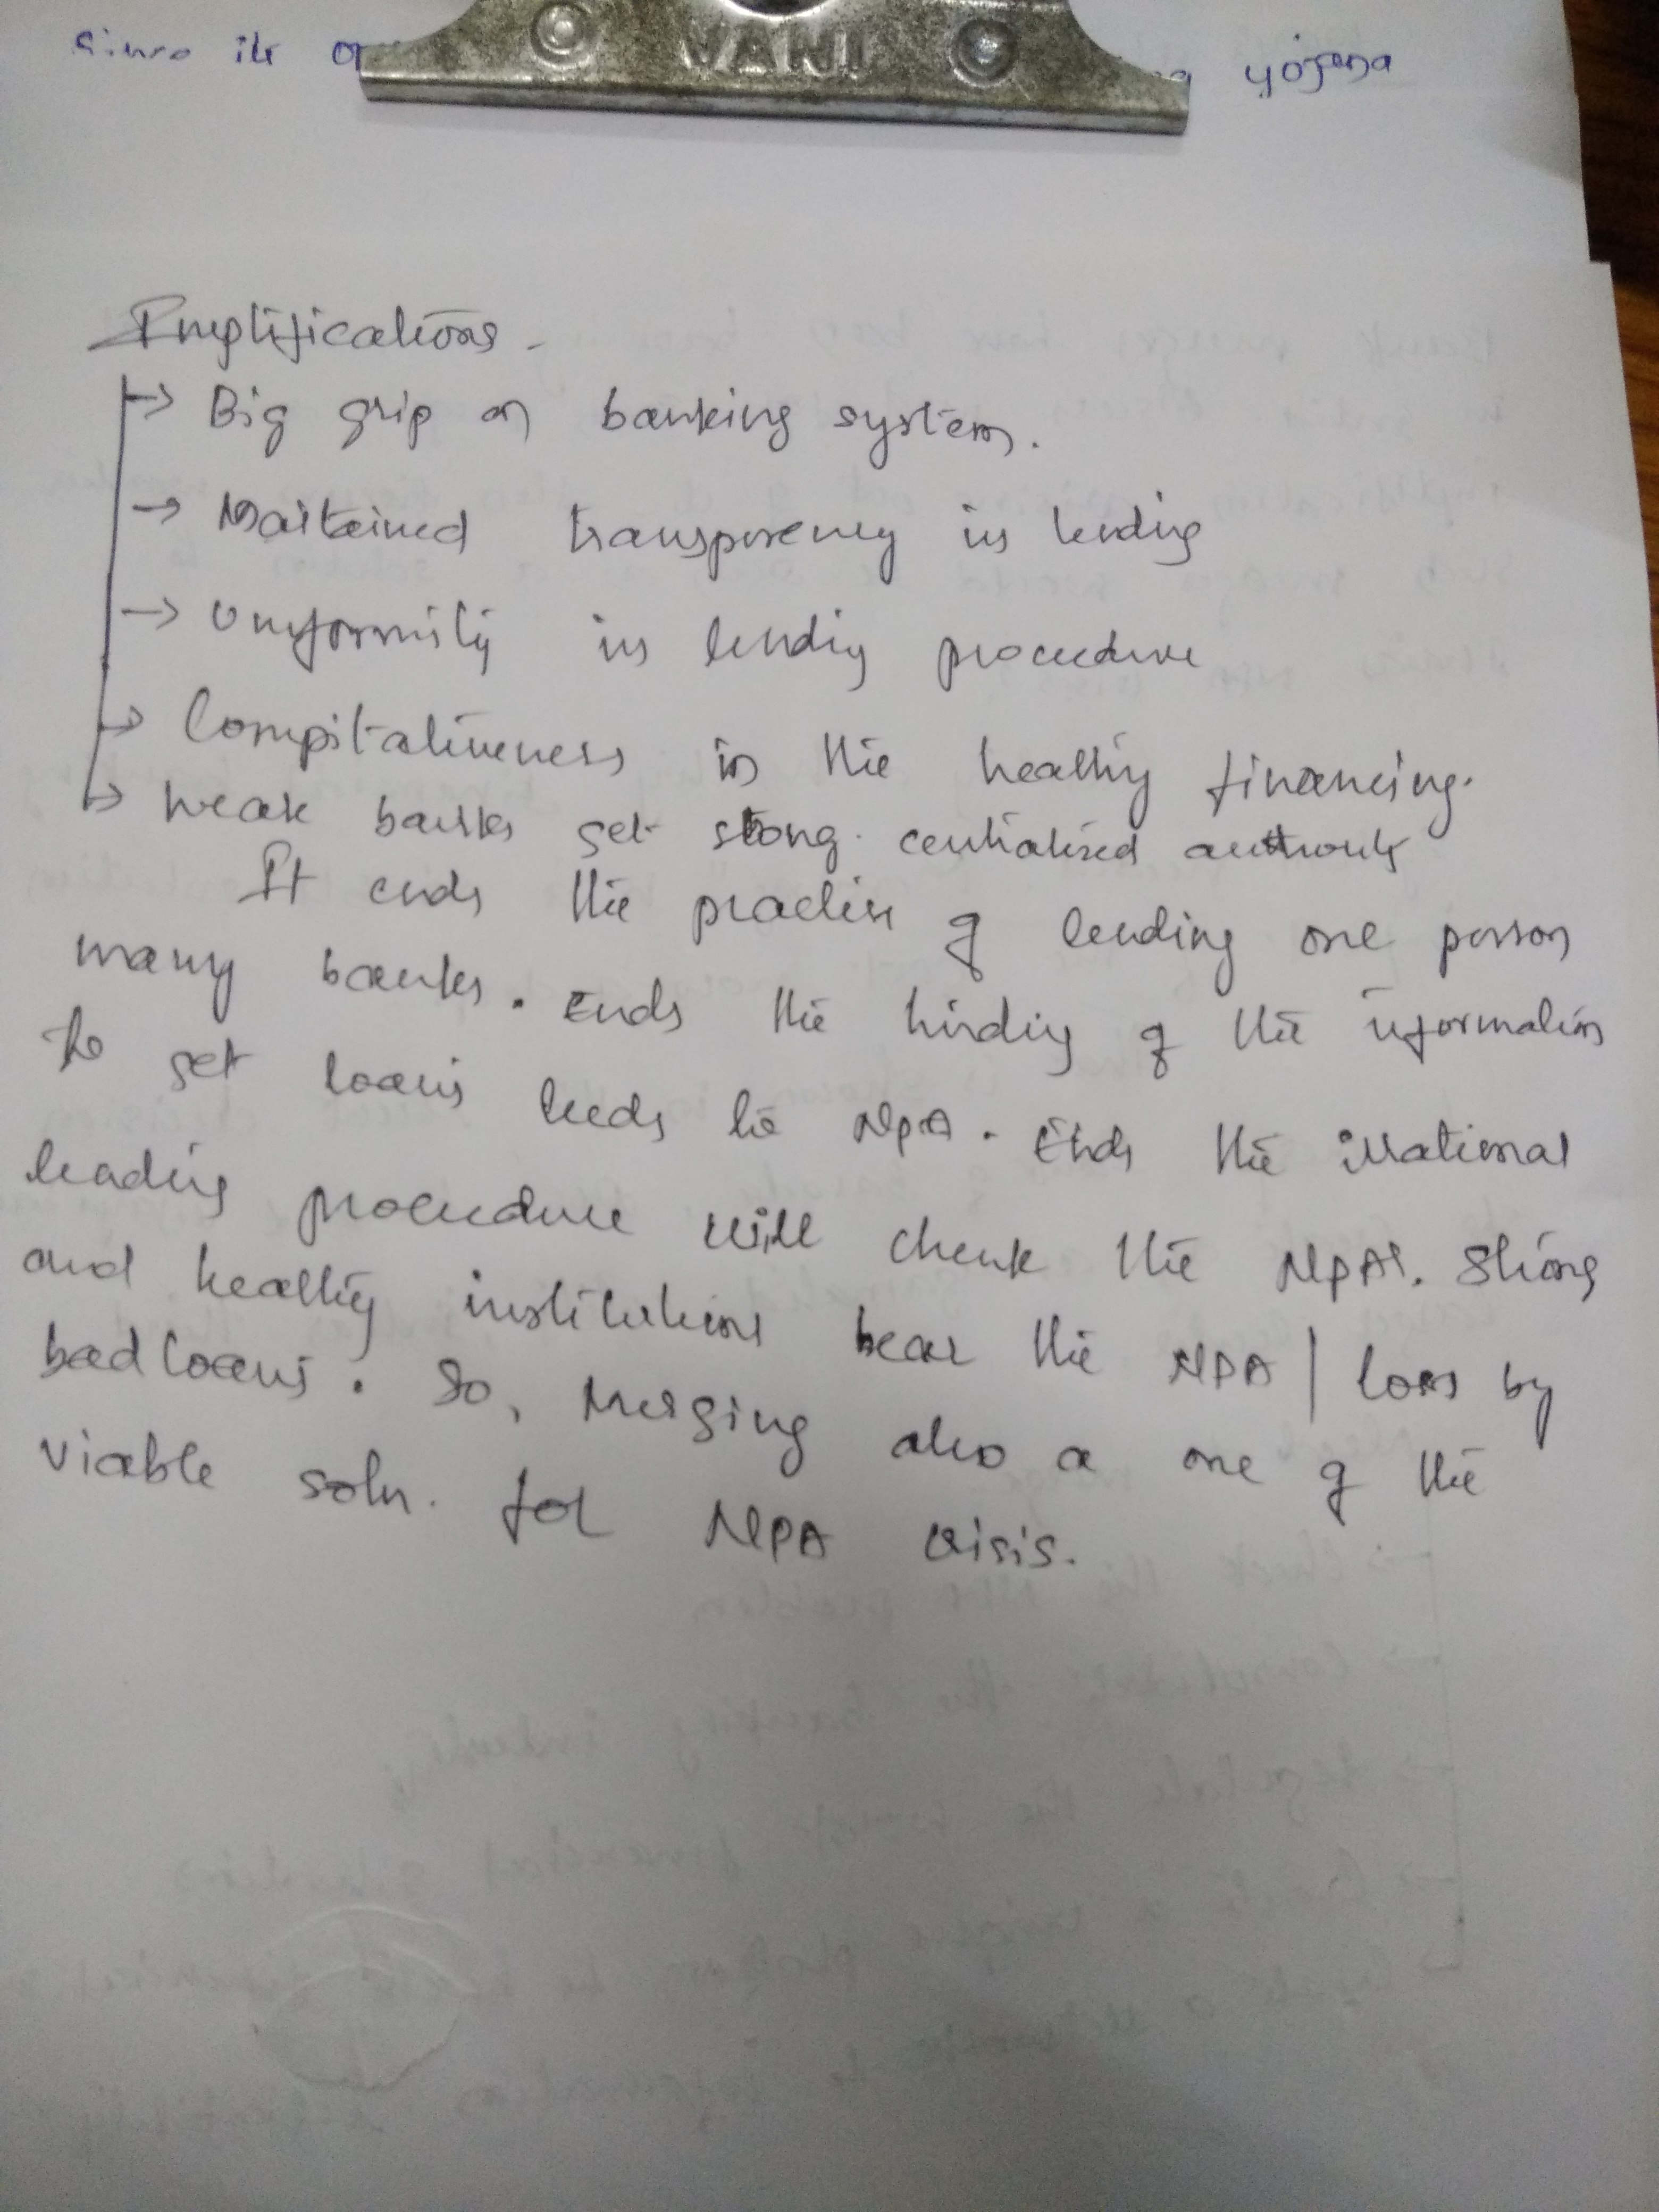 VANI
yojana
Implifications -
→ Big grip on banking system.
→ Maitained transparency in lending
→ Uniformity in lending procedure
→ Compitativeness in the healthy financing.
→ weak banks get strong centralised authority
It ends the practise of lending one person
many banks. Ends the hinding of the information
to get loans leeds to NPA. Ends the irrational
leading procedure will check the NPA's. Strong
and healthy institutions bear the NPA | loss by
bad loans. So, Merging also a one of the
viable soln. for NPA crisis.